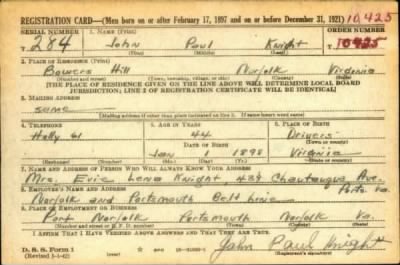 REGISTRATION CARD—(Men born on or after February 17, 1897 and on or before December 31, 1921) 10,425
SERIAL NUMBER 1. NAME (Print) ORDER NUMBER
284 John Paul Knight 10425
(First) (Middle) (Last)
2. PLACE OF RESIDENCE (Print)
Bowers Hill Norfolk Virginia
(Number and street) (Town, township, village, or city) (County) (State)
[THE PLACE OF RESIDENCE GIVEN ON THE LINE ABOVE WILL DETERMINE LOCAL BOARD
JURISDICTION; LINE 2 OF REGISTRATION CERTIFICATE WILL BE IDENTICAL]
3. MAILING ADDRESS
same
[Mailing address if other than place indicated on line 2. If same insert word same]
4. TELEPHONE 5. AGE IN YEARS 6. PLACE OF BIRTH
Holly 61 44 Drivers
DATE OF BIRTH (Town or county)
Jan 1 1898 Virginia
(Exchange) (Number) (Mo.) (Day) (Yr.) (State or country)
7. NAME AND ADDRESS OF PERSON WHO WILL ALWAYS KNOW YOUR ADDRESS
Mrs. Lena Knight, 439 Chautauqua Ave. Ports. Va.
8. EMPLOYER'S NAME AND ADDRESS
Norfolk and Portsmouth Belt Line
9. PLACE OF EMPLOYMENT OR BUSINESS
Port Norfolk Portsmouth Norfolk Va.
(Number and street or R. F. D. number) (Town) (County) (State)
I AFFIRM THAT I HAVE VERIFIED ABOVE ANSWERS AND THAT THEY ARE TRUE.
D. S. S. Form 1
(Revised 1-1-42) John Paul Knight
(Registrant's signature)